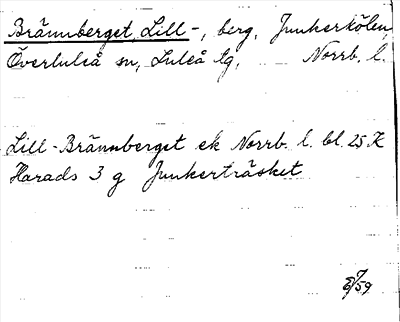 Brännberget, Lill-, berg, Junkerkölen,
Överluleå sn, Luleå tg, Norrb. l.
Lill-Brännberget ek Norrb. l. bl. 25 K
Harads 3 g Junkerträsket